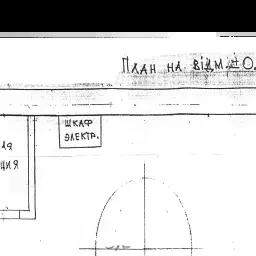 План на відм. ±0.
шкаф
электр.
ля
ция